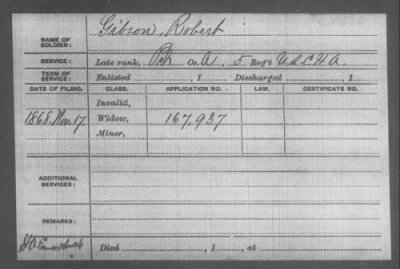 Gibson, Robert
NAME OF SOLDIER:
SERVICE: Late rank, Co. A, 5 Reg't U.S.C.H.A.
TERM OF SERVICE: Enlisted , 1 Discharged , 1
DATE OF FILING. CLASS. APPLICATION NO. LAW. CERTIFICATE NO.
Invalid,
1868. Nov. 17 Widow, 167.937
Minor,
ADDITIONAL SERVICES:
REMARKS:
Died , 1 , at